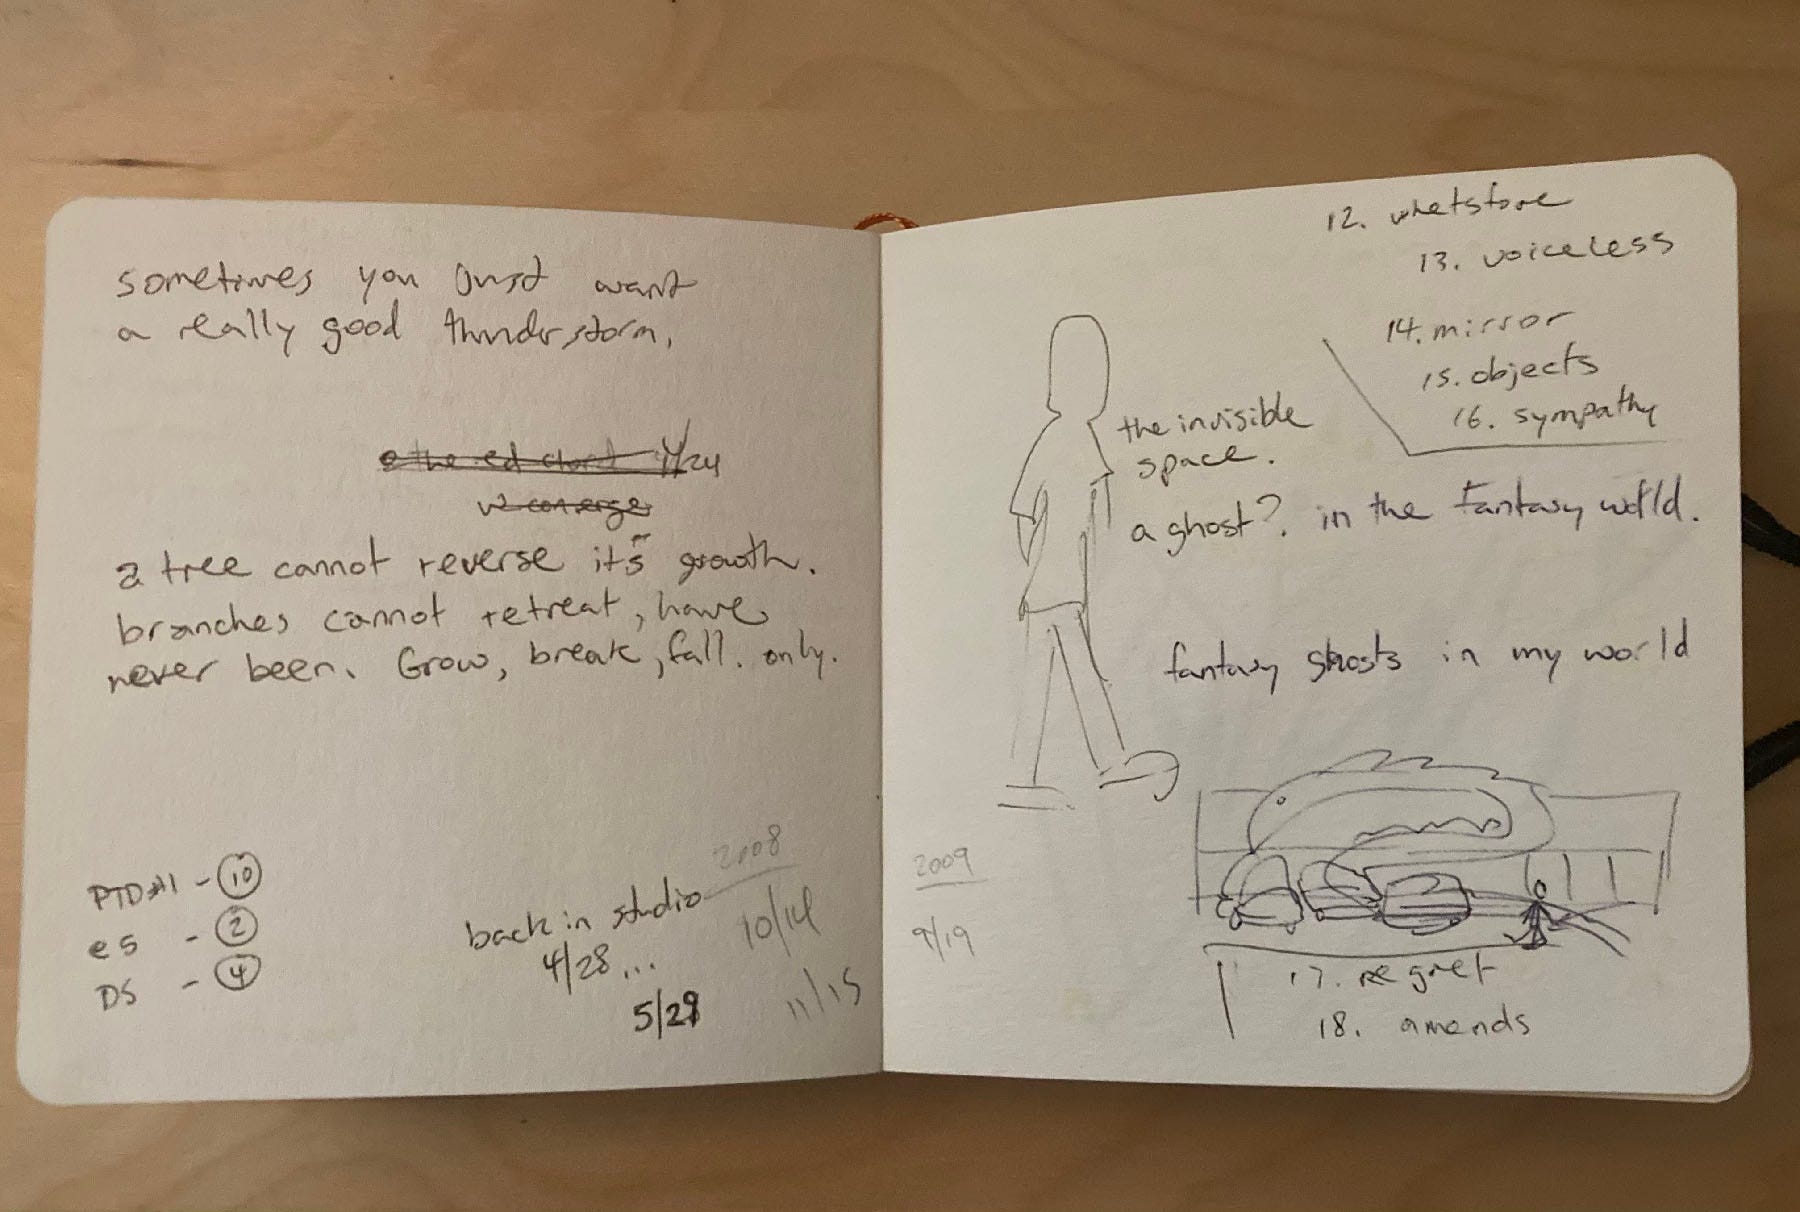 sometimes you just want
a really good thunderstorm.
11/24
v2 converge
a tree cannot reverse it's growth.
branches cannot retreat, have
never been. Grow, break, fall. only.
PTD#1 - 10
es - 2
DS - 4
back in studio
4/28...
5/28
2008
10/14
11/15
12. whetstone
13. voiceless
14. mirror
15. objects
16. sympathy
the invisible
space.
a ghost? in the fantasy world.
fantasy ghosts in my world
2009
9/19
17. regret
18. amends